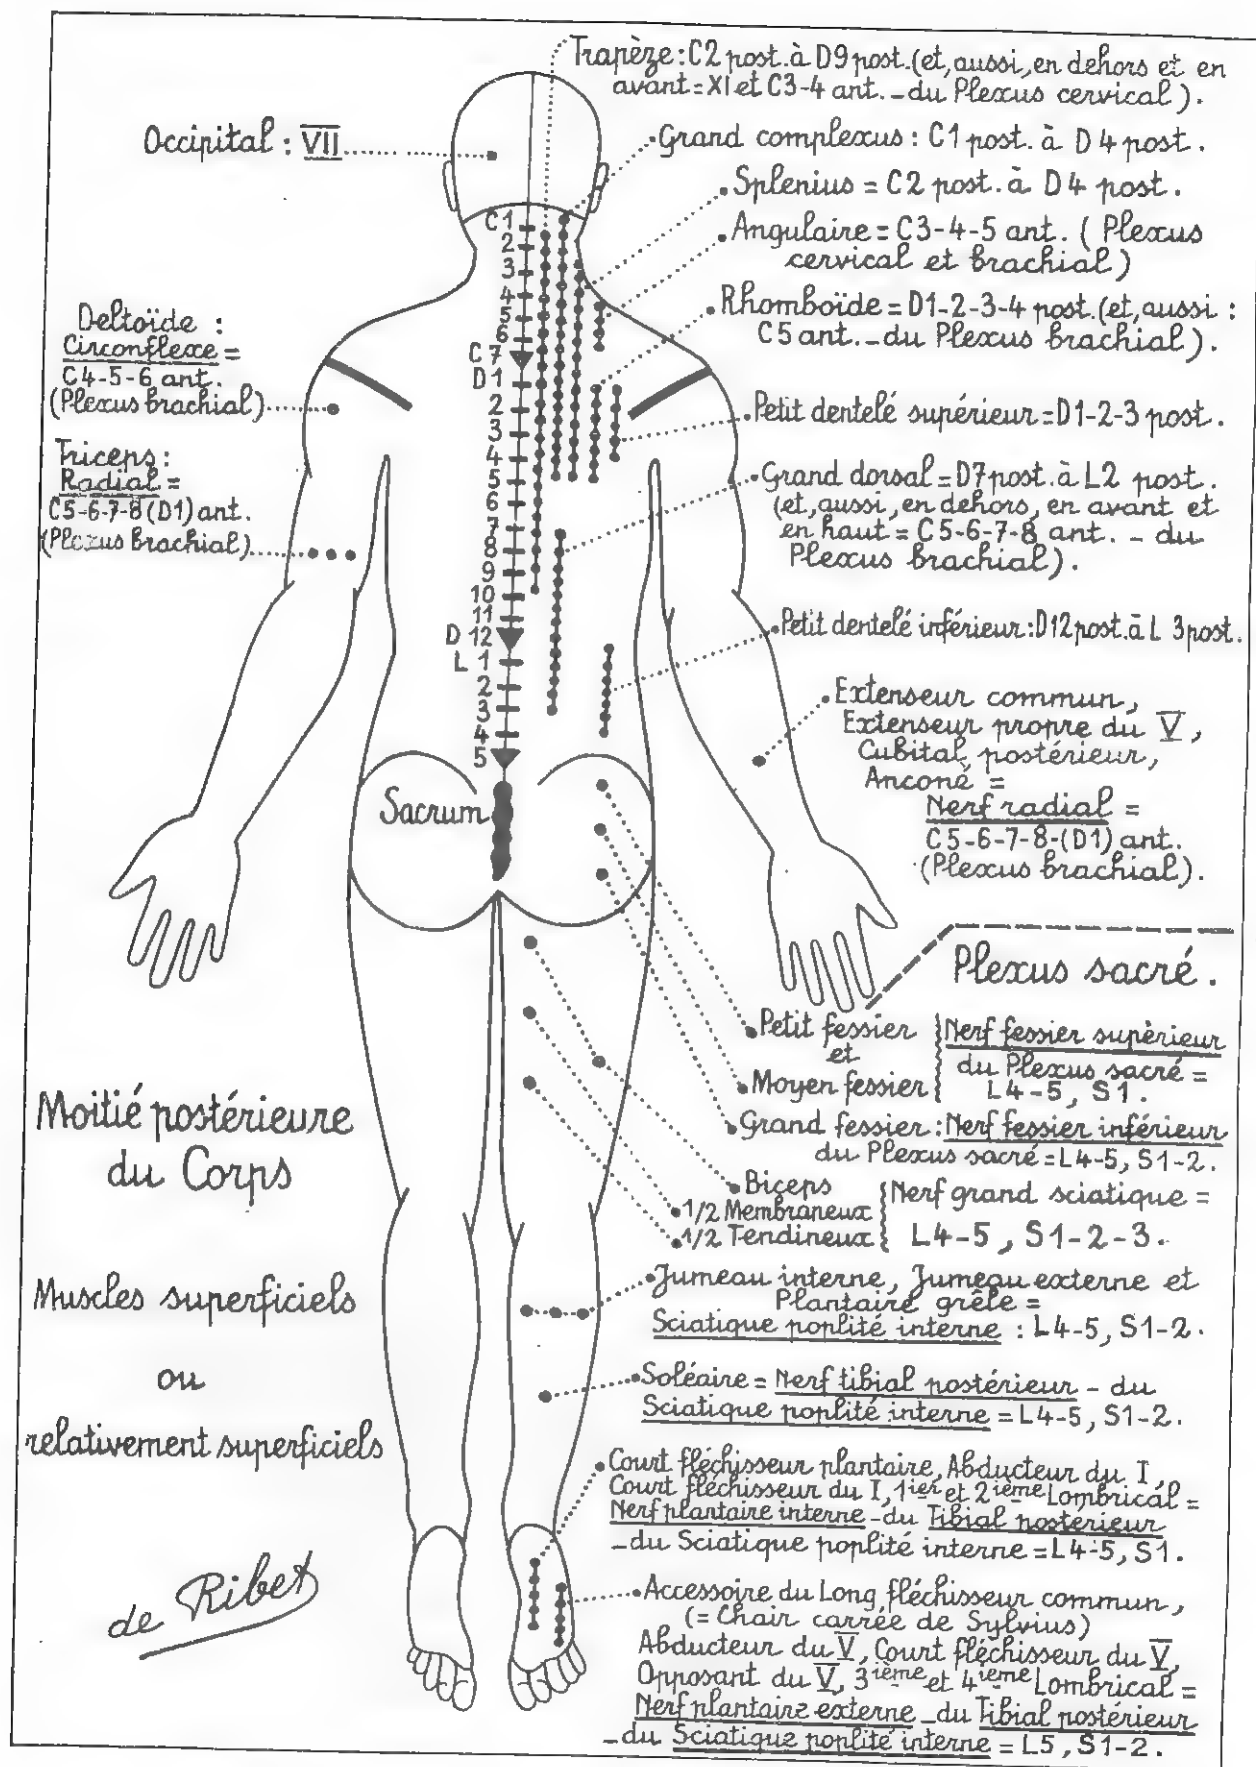 Trapèze : C2 post. à D9 post. (et, aussi, en dehors et en
avant = XI et C3-4 ant. - du Plexus cervical).
Occipital : VII
Grand complexus : C1 post. à D4 post.
Splenius = C2 post. à D4 post.
Angulaire = C3-4-5 ant. ( Plexus
cervical et brachial)
Rhomboïde = D1-2-3-4 post. (et, aussi :
C5 ant. - du Plexus brachial).
Deltoïde :
Circonflexe =
C4-5-6 ant.
(Plexus brachial)
Petit dentelé supérieur = D1-2-3 post.
Triceps :
Radial =
C5-6-7-8 (D1) ant.
(Plexus brachial)
Grand dorsal = D7 post. à L2 post.
(et, aussi, en dehors, en avant et
en haut = C5-6-7-8 ant. - du
Plexus brachial).
C1
2
3
4
5
6
C7
D1
2
3
4
5
6
7
8
9
10
11
D 12
L 1
2
3
4
5
Sacrum
Petit dentelé inférieur : D12 post. à L 3 post.
Extenseur commun,
Extenseur propre du V,
Cubital postérieur,
Anconé =
Nerf radial =
C5-6-7-8-(D1) ant.
(Plexus brachial).
Plexus sacré.
Petit fessier
et
Moyen fessier
Nerf fessier supèrieur
du Plexus sacré =
L4-5, S1.
Grand fessier : Nerf fessier inférieur
du Plexus sacré = L4-5, S1-2.
Biceps
1/2 Membraneux
1/2 Tendineux
Nerf grand sciatique =
L4-5, S1-2-3.
Jumeau interne, Jumeau externe et
Plantaire grêle =
Sciatique poplité interne : L4-5, S1-2.
Soléaire = Nerf tibial postérieur - du
Sciatique poplité interne = L4-5, S1-2.
Court fléchisseur plantaire, Abducteur du I,
Court fléchisseur du I, 1ier et 2ième Lombrical =
Nerf plantaire interne - du Tibial postérieur
- du Sciatique poplité interne = L4-5, S1.
Accessoire du Long fléchisseur commun,
(= Chair carrée de Sylvius)
Abducteur du V, Court fléchisseur du V,
Opposant du V, 3ième et 4ième Lombrical =
Nerf plantaire externe - du Tibial postérieur
- du Sciatique poplité interne = L5, S1-2.
Moitié postérieure
du Corps
Muscles superficiels
ou
relativement superficiels
de Ribet